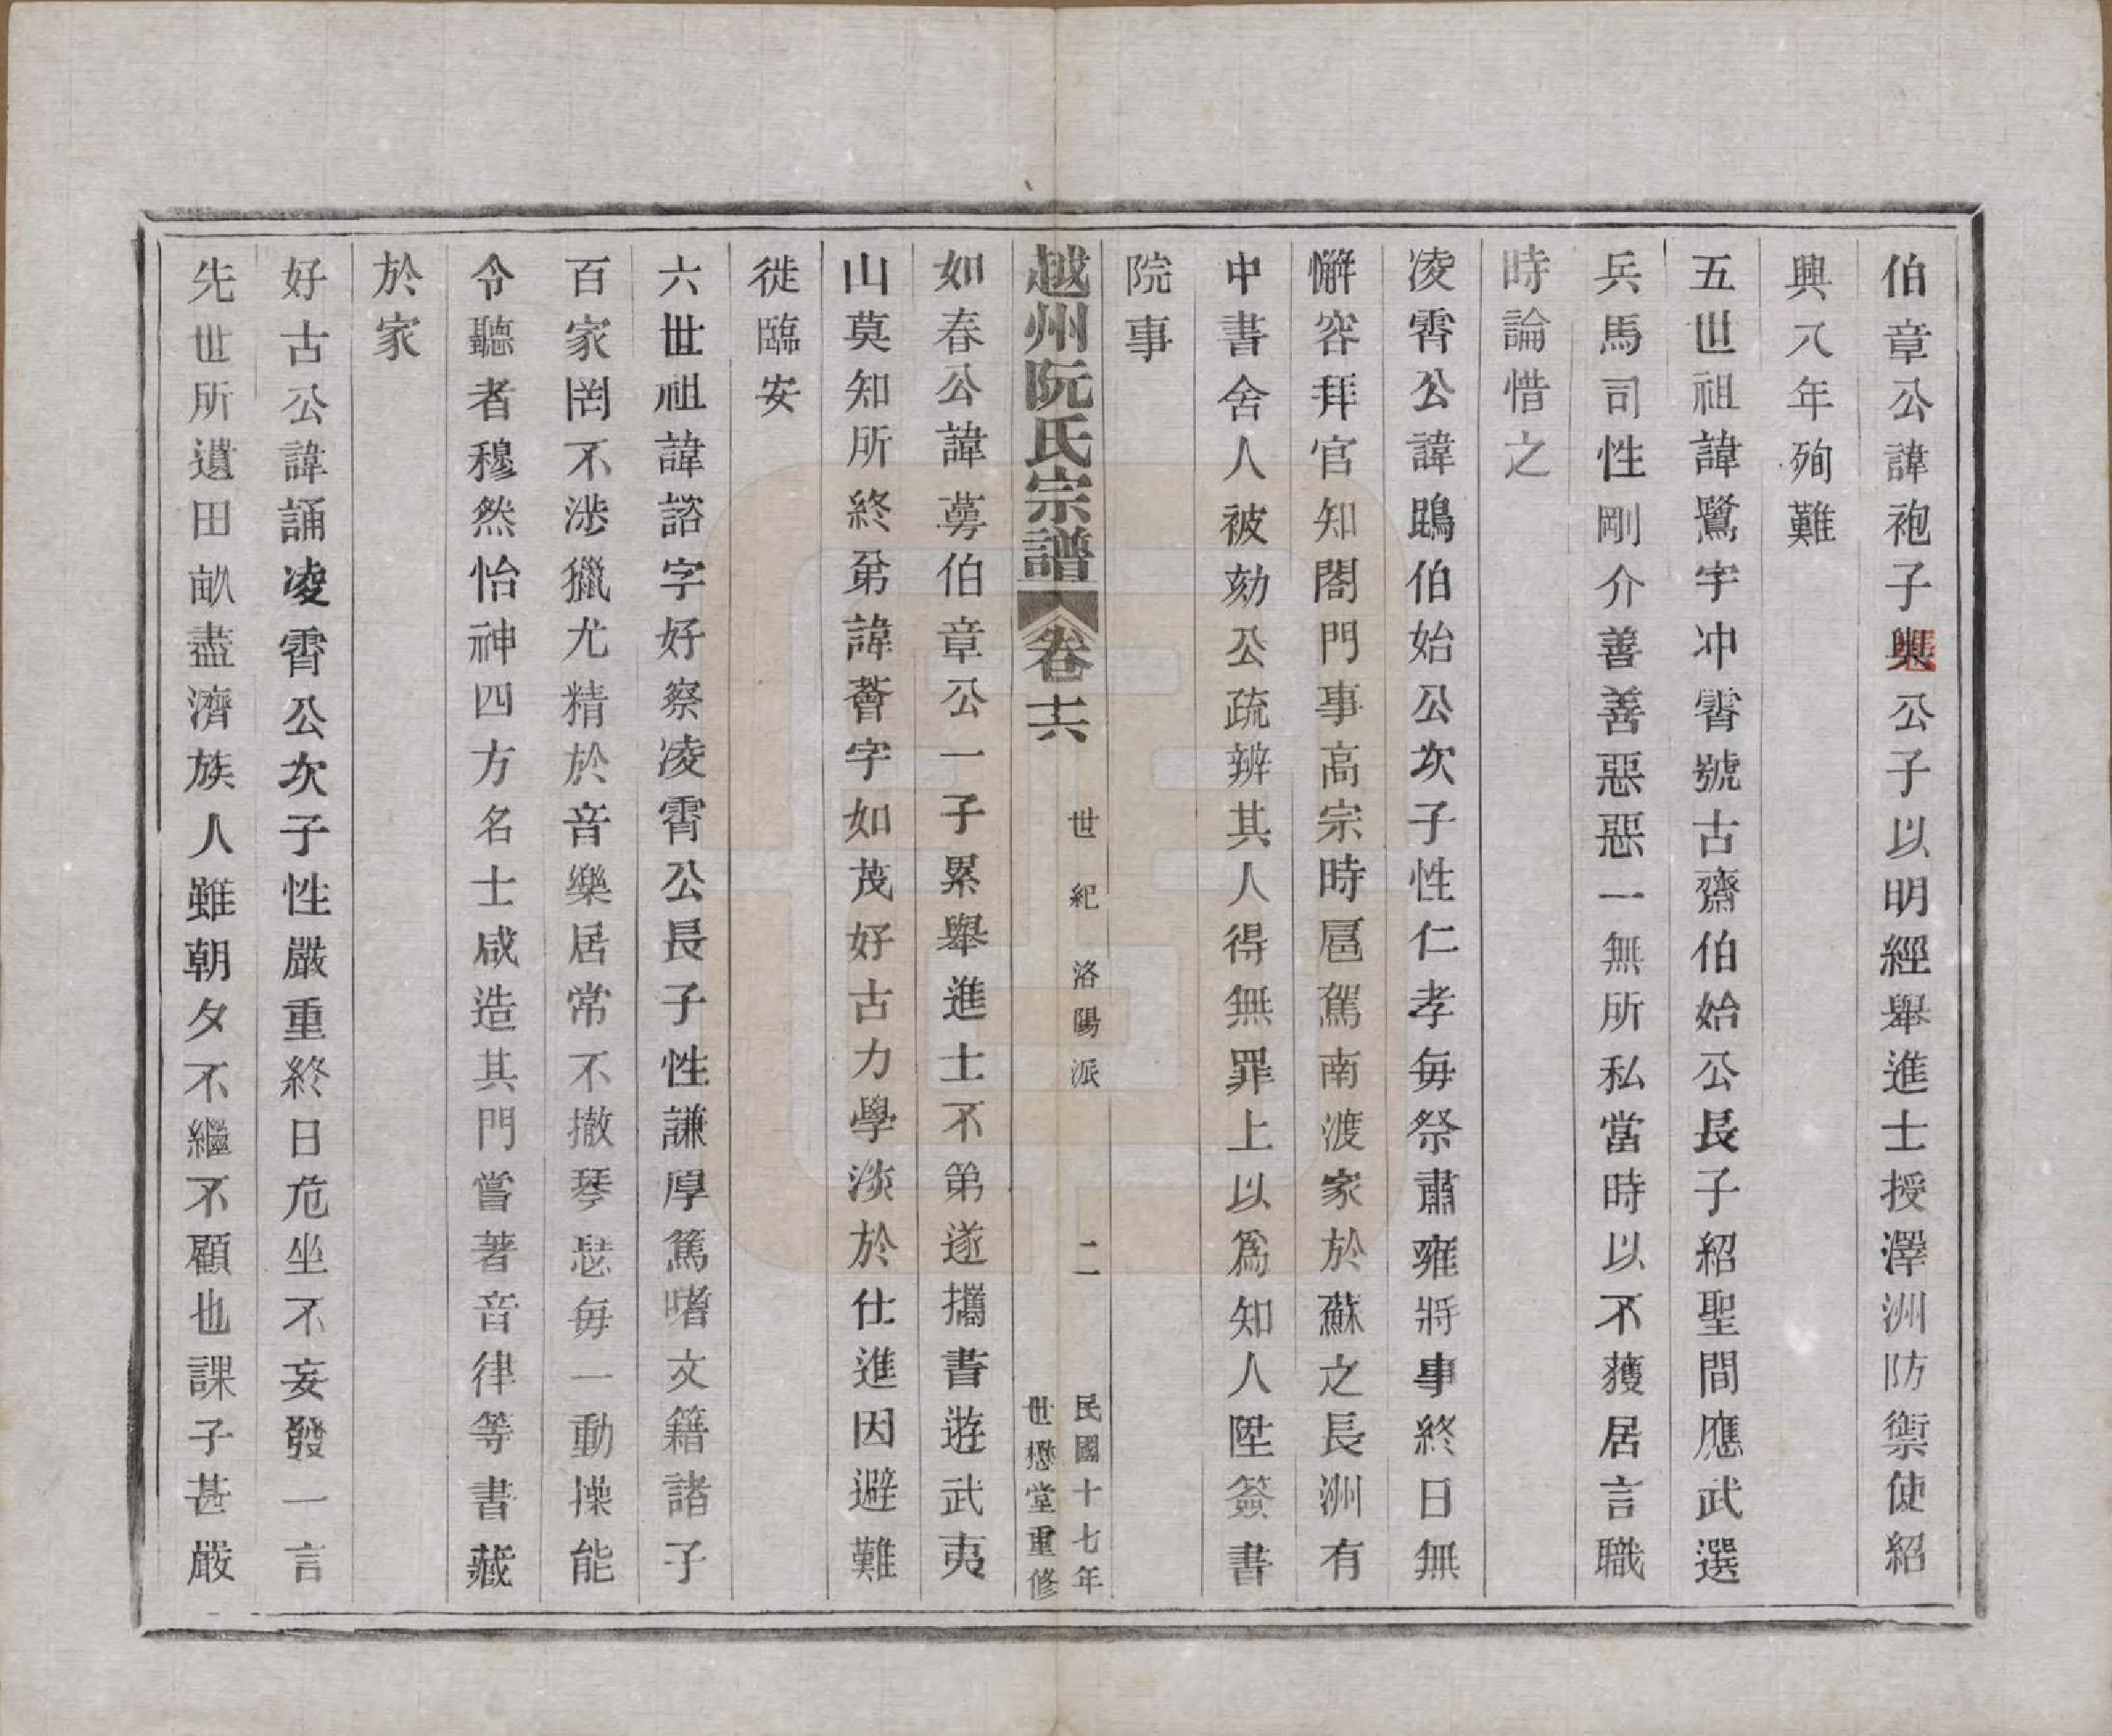 伯章公諱袍子興公子以明經舉進士授澤洲防禦使紹
興八年殉難
五世祖諱鷺字冲霄號古齋伯始公長子紹聖間應武選
兵馬司性剛介善善惡惡一無所私當時以不獲居言職
時論惜之
凌霄公諱鵾伯始公次子性仁孝每祭肅雍將事終日無
懈容拜官知閤門事高宗時扈駕南渡家於蘇之長洲有
中書舍人被劾公疏辨其人得無罪上以爲知人陞簽書
院事
越州阮氏宗譜 卷十六 世紀 洛陽派 二 民國十七年
世懋堂重修
如春公諱蕚伯章公一子累舉進士不第遂攜書遊武夷
山莫知所終弟諱薈字如茂好古力學淡於仕進因避難
徙臨安
六世祖諱諮字好察凌霄公長子性謙厚篤嗜文籍諸子
百家罔不涉獵尤精於音樂居常不撤琴瑟每一動操能
令聽者穆然怡神四方名士咸造其門嘗著音律等書藏
於家
好古公諱誦凌霄公次子性嚴重終日危坐不妄發一言
先世所遺田畝盡濟族人雖朝夕不繼不顧也課子甚嚴